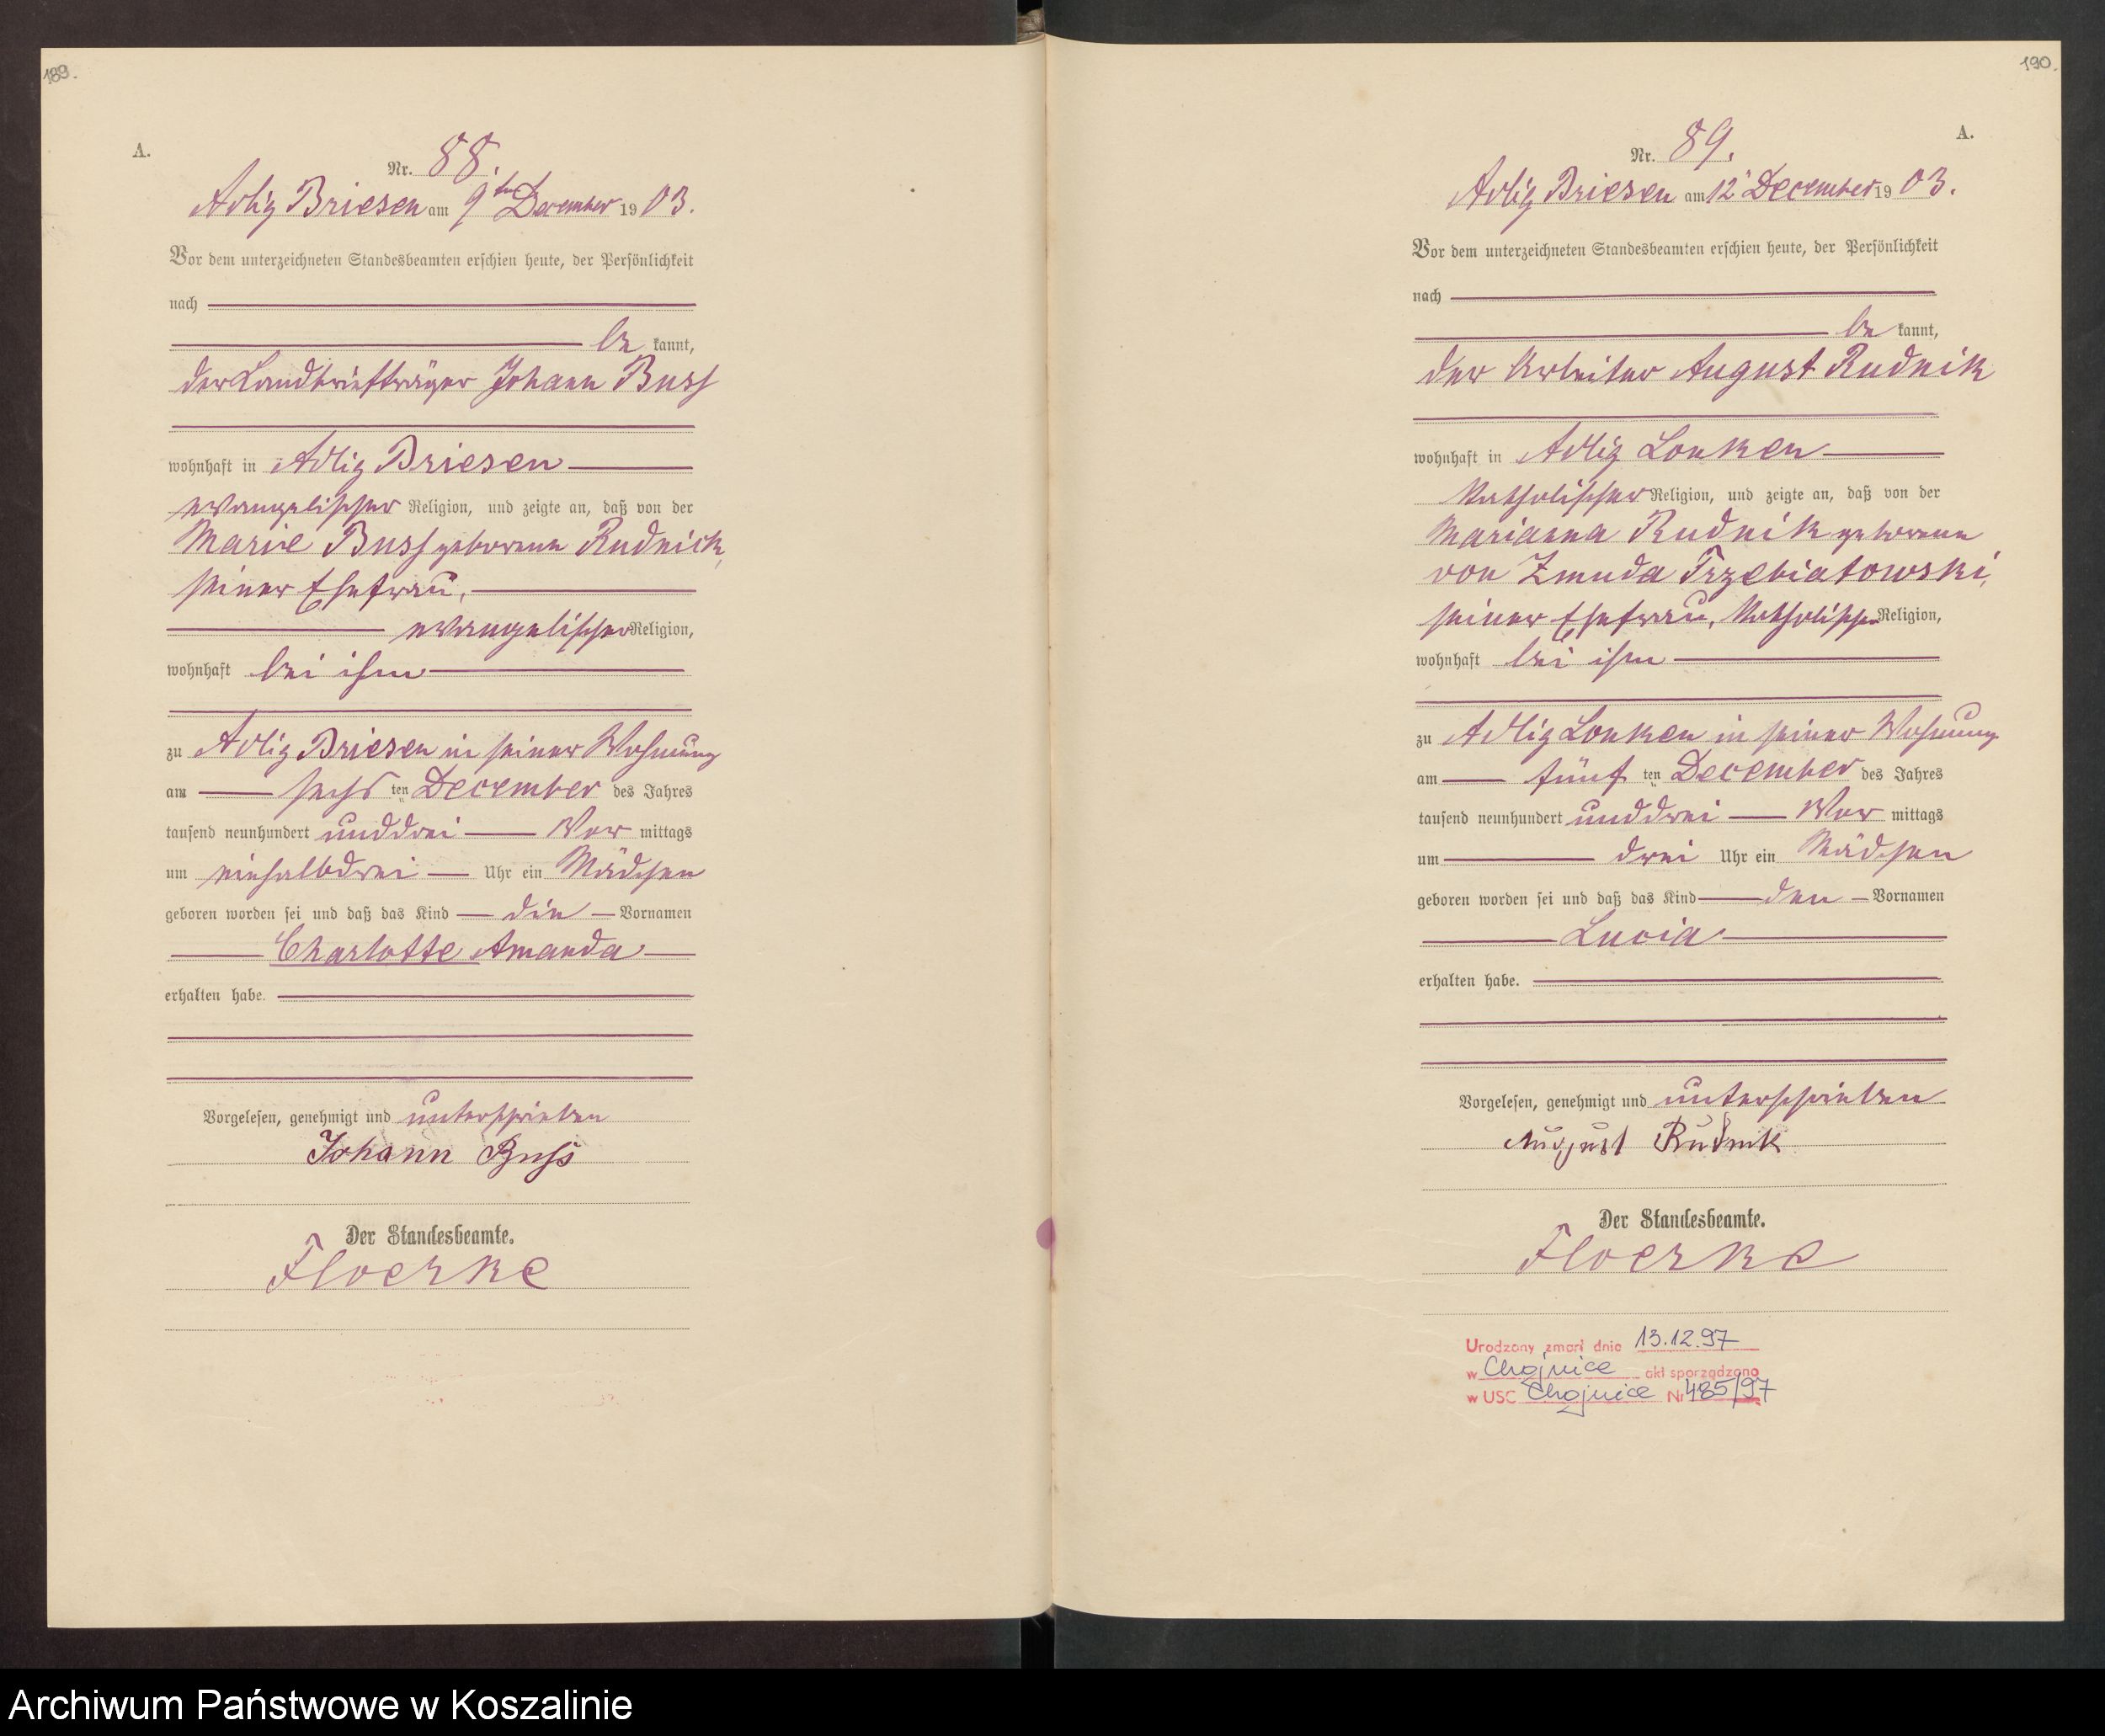 189.
A.
Nr. 88.
Adlig Briesen am 9ten December 1903.
Vor dem unterzeichneten Standesbeamten erschien heute, der Persönlichkeit
nach
be kannt,
der Landbriefträger Johann Buss
wohnhaft in Adlig Briesen
evangelischer Religion, und zeigte an, daß von der
Marie Buss geborene Rudnick,
seiner Ehefrau,
evangelischer Religion,
wohnhaft bei ihm
zu Adlig Briesen in seiner Wohnung
am sechs ten December des Jahres
tausend neunhundert unddrei Vor mittags
um einhalbdrei Uhr ein Mädchen
geboren worden sei und daß das Kind die Vornamen
Charlotte Amanda
erhalten habe.
Vorgelesen, genehmigt und unterschrieben
Johann Buss
Der Standesbeamte.
Floerke
190.
A.
Nr. 89.
Adlig Briesen am 12" December 1903.
Vor dem unterzeichneten Standesbeamten erschien heute, der Persönlichkeit
nach
be kannt,
der Arbeiter August Rudnik
wohnhaft in Adlig Lonken
katholischer Religion, und zeigte an, daß von der
Marianna Rudnik geborene
von Zmuda Trzebiatowski,
seiner Ehefrau, katholischer Religion,
wohnhaft bei ihm
zu Adlig Lonken in seiner Wohnung
am fünf ten December des Jahres
tausend neunhundert unddrei Vor mittags
um drei Uhr ein Mädchen
geboren worden sei und daß das Kind den Vornamen
Lucia
erhalten habe.
Vorgelesen, genehmigt und unterschrieben
August Rudnik
Der Standesbeamte.
Floerke
Urodzony zmarł dnia 13.12.97
w Chojnice akt sporządzono
w USC Chojnice Nr 485/97
Archiwum Państwowe w Koszalinie